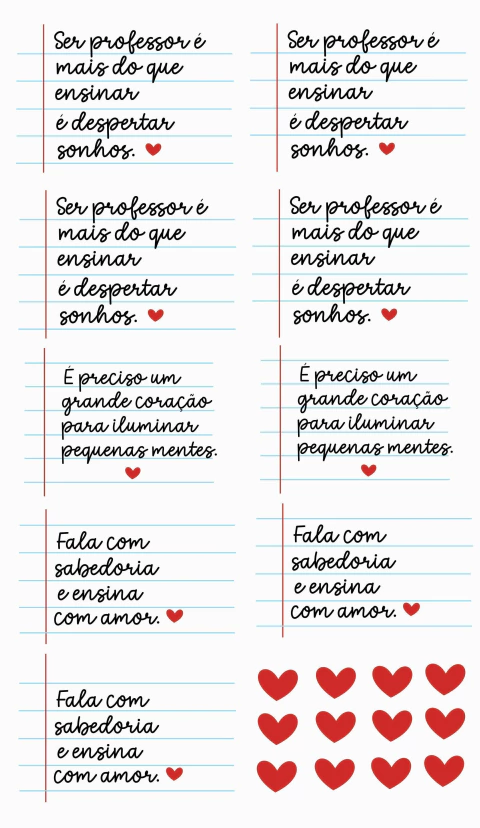 Ser professor é
mais do que
ensinar
é despertar
sonhos.
Ser professor é
mais do que
ensinar
é despertar
sonhos.
Ser professor é
mais do que
ensinar
é despertar
sonhos.
Ser professor é
mais do que
ensinar
é despertar
sonhos.
É preciso um
grande coração
para iluminar
pequenas mentes.
É preciso um
grande coração
para iluminar
pequenas mentes.
Fala com
sabedoria
e ensina
com amor.
Fala com
sabedoria
e ensina
com amor.
Fala com
sabedoria
e ensina
com amor.